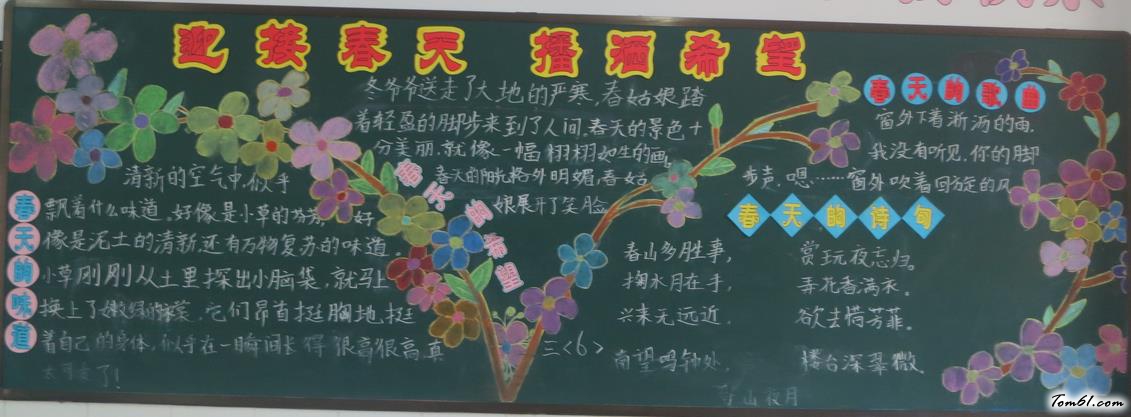 迎接春天 播洒希望
冬爷爷送走了大地的严寒,春姑娘踏
着轻盈的脚步来到了人间。春天的景色十
分美丽,就像一幅栩栩如生的画。
春天的阳光格外明媚,春姑
娘展开了笑脸
春天的希望
清新的空气中,似乎
春天的味道
飘着什么味道。好像是小草的芬芳,好
像是泥土的清新,还有万物复苏的味道。
小草刚刚从土里探出小脑袋,就马上
换上了嫩绿的 它们昂首挺胸地,挺
着自己的身体,似乎在一瞬间长得很高很高,真
太可爱了!
三<6>
春天的歌曲
窗外下着淅沥的雨,
我没有听见,你的脚
步声,嗯……窗外吹着回旋的风
春天的诗句
春山多胜事, 赏玩夜忘归。
掬水月在手, 弄花香满衣。
兴来无远近, 欲去惜芳菲。
南望鸣钟处, 楼台深翠微。
山夜月
Tom61.com